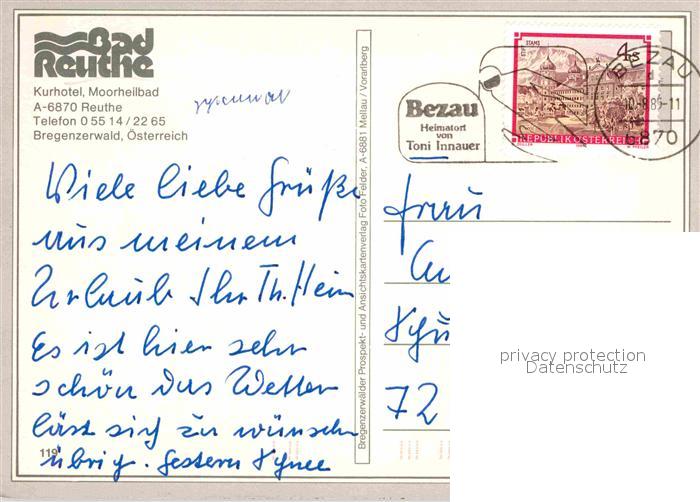 Bad
Reuthe
Kurhotel, Moorheilbad
A-6870 Reuthe
Telefon 0 55 14 / 22 65
Bregenzerwald, Österreich
Viele liebe Grüße
aus meinem
Urlaub Ihr Th. Hein
Es ist hier sehr
schön das Wetter
läst sich zu wünschen
übrig. Gestern Schnee
119
Bregenzerwälder Prospekt- und Ansichtskartenverlag Foto Felder, A-6881 Mellau / Vorarlberg
Bezau
Heimatort
von
Toni Innauer
STIFT STAMS
4 S
REPUBLIK ÖSTERREICH
BEZAU
6870
Frau
72
privacy protection
Datenschutz